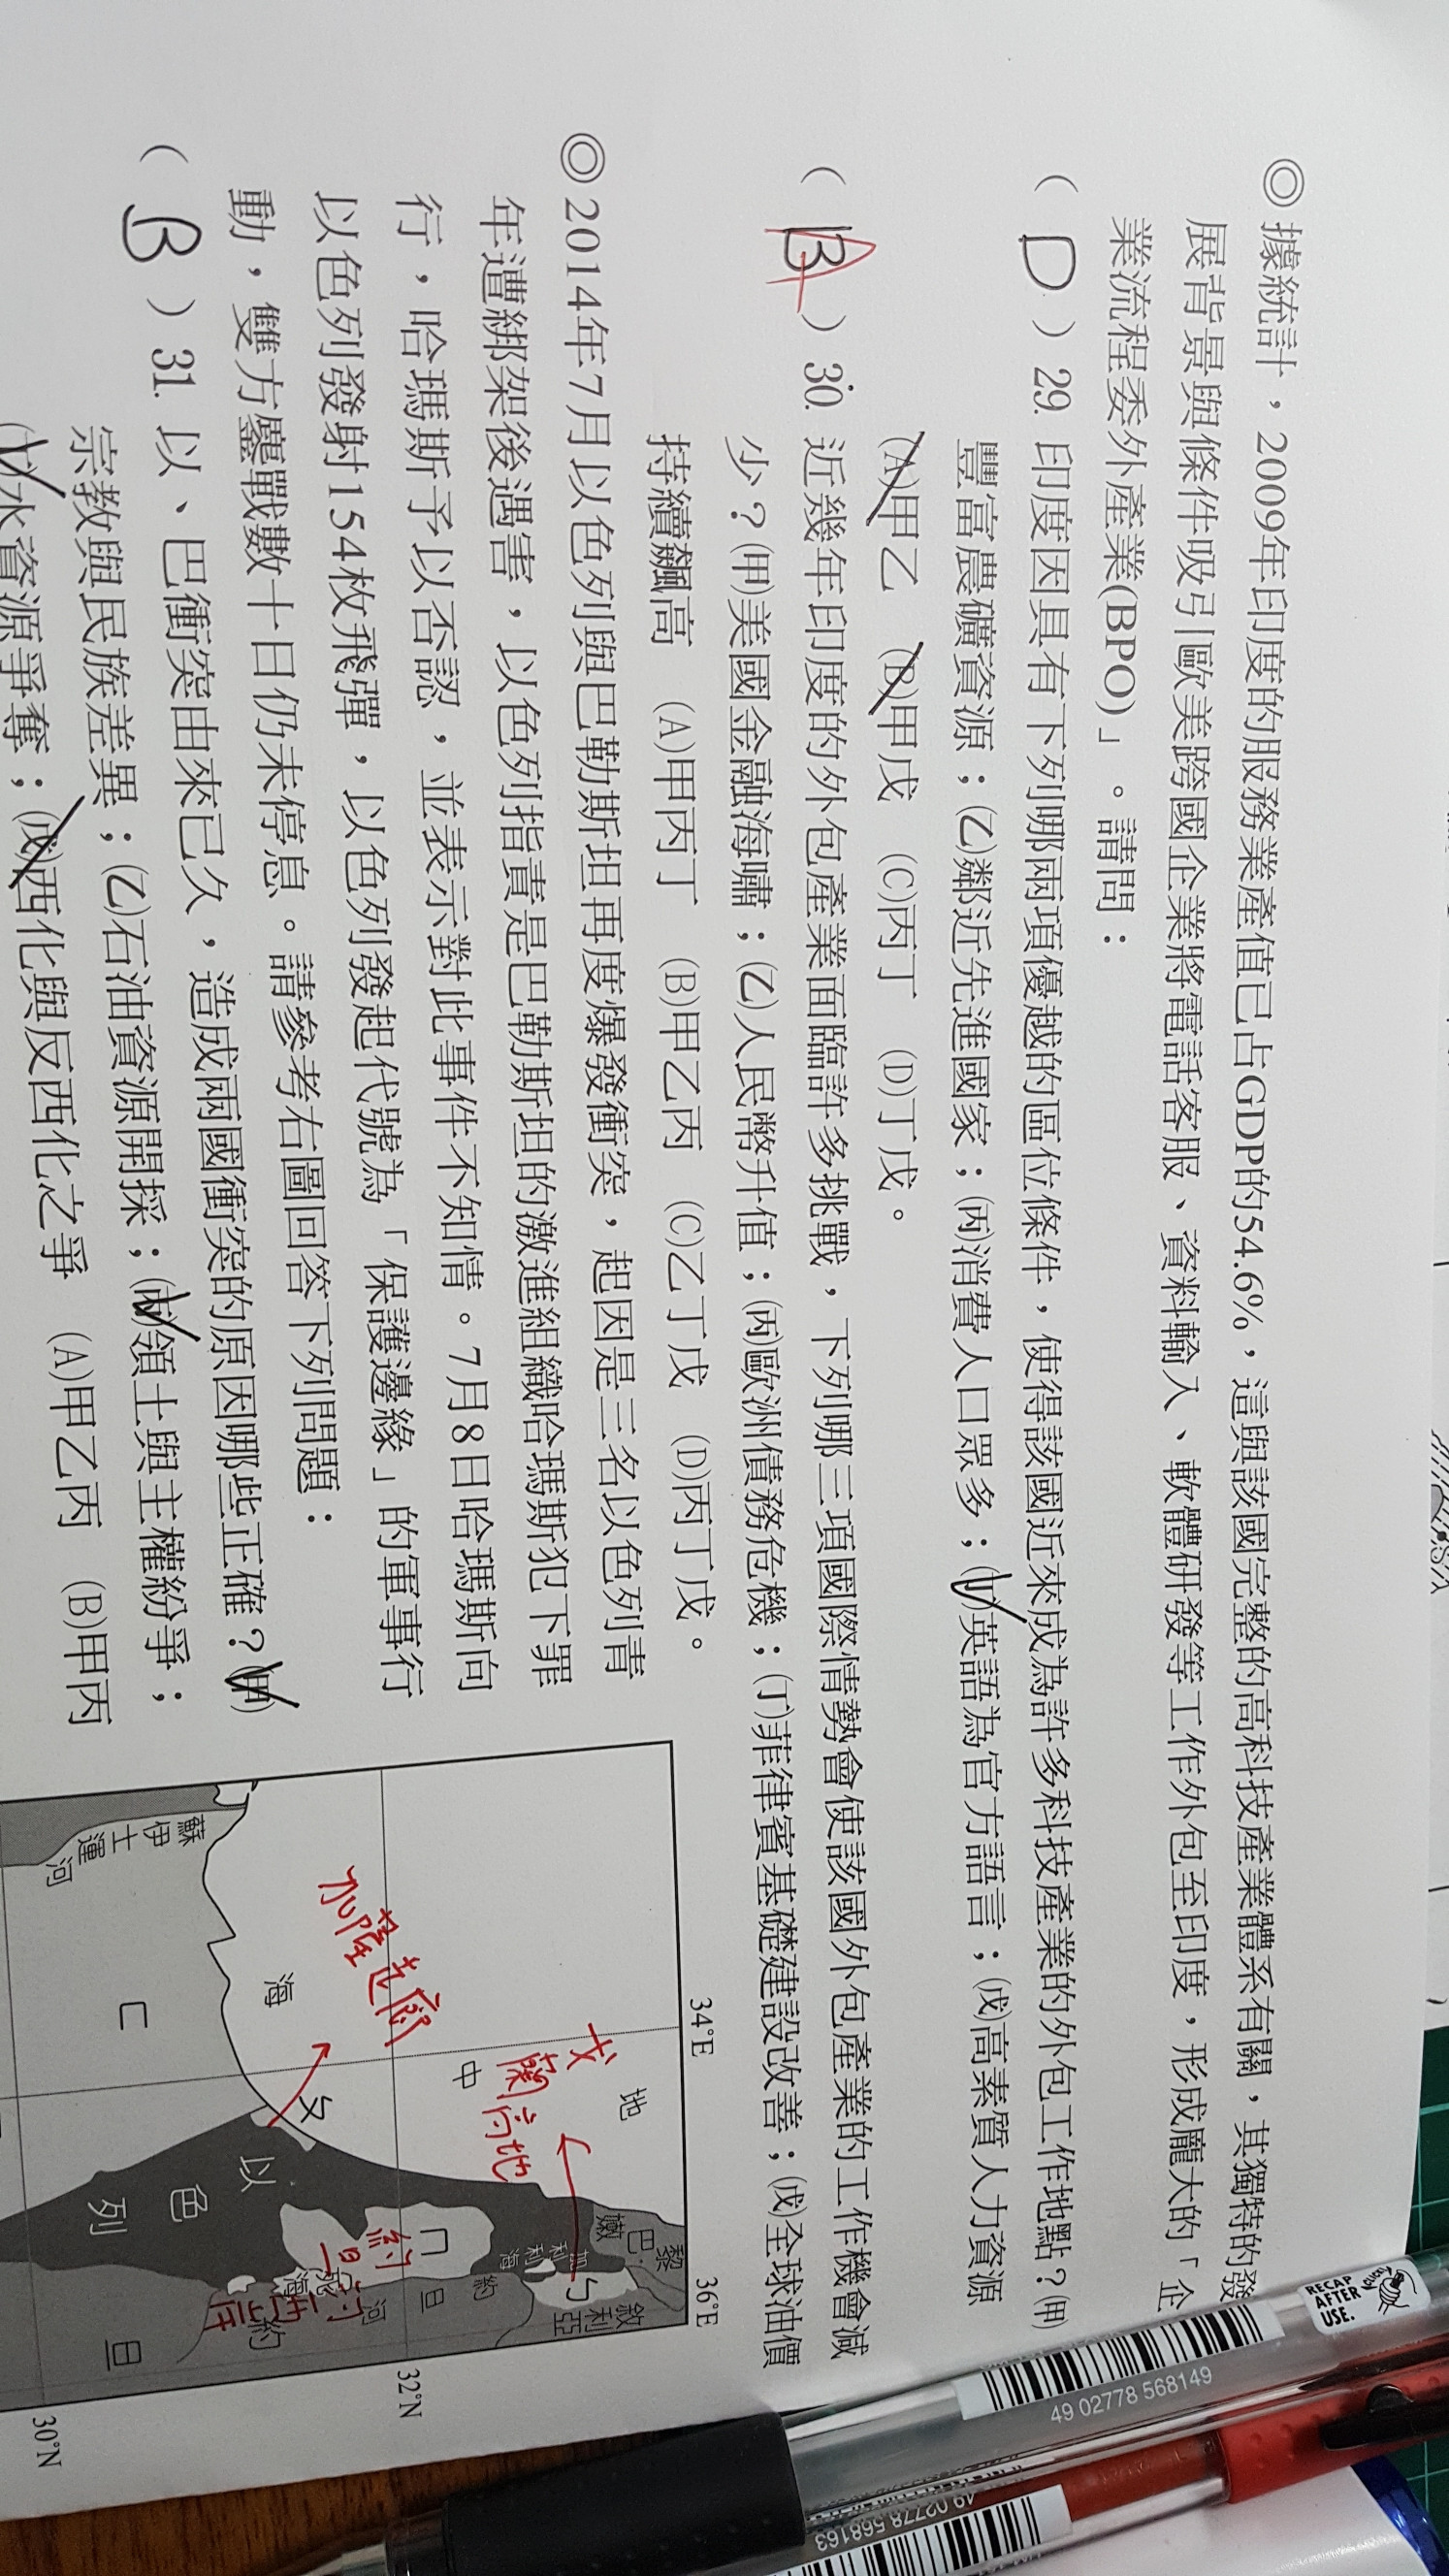 ◎據統計，2009年印度的服務業產值已占GDP的54.6%，這與該國完整的高科技產業體系有關，其獨特的發
展背景與條件吸引歐美跨國企業將電話客服、資料輸入、軟體研發等工作外包至印度，形成龐大的「企
業流程委外產業(BPO)」。請問：
( D ) 29. 印度因具有下列哪兩項優越的區位條件，使得該國近來成為許多科技產業的外包工作地點？(甲)
豐富農礦資源；(乙)鄰近先進國家；(丙)消費人口眾多；(丁)英語為官方語言；(戊)高素質人力資源
(A)甲乙 (B)甲戊 (C)丙丁 (D)丁戊。
( B A ) 30. 近幾年印度的外包產業面臨許多挑戰，下列哪三項國際情勢會使該國外包產業的工作機會減
少？(甲)美國金融海嘯；(乙)人民幣升值；(丙)歐洲債務危機；(丁)菲律賓基礎建設改善；(戊)全球油價
持續飆高 (A)甲丙丁 (B)甲乙丙 (C)乙丁戊 (D)丙丁戊。
◎2014年7月以色列與巴勒斯坦再度爆發衝突，起因是三名以色列青
年遭綁架後遇害，以色列指責是巴勒斯坦的激進組織哈瑪斯犯下罪
行，哈瑪斯予以否認，並表示對此事件不知情。7月8日哈瑪斯向
以色列發射154枚飛彈，以色列發起代號為「保護邊緣」的軍事行
動，雙方鏖戰數十日仍未停息。請參考右圖回答下列問題：
( B ) 31. 以、巴衝突由來已久，造成兩國衝突的原因哪些正確？(甲)
宗教與民族差異；(乙)石油資源開採；(丙)領土與主權紛爭；
(丁)水資源爭奪；(戊)西化與反西化之爭 (A)甲乙丙 (B)甲丙
34°E
36°E
32°N
30°N
地
中
海
戈
蘭高地
加薩走廊
約旦河西岸
黎
巴
嫩
敘利亞
加利利海
約
旦
河
以
色
列
約
旦
蘇
伊
士
運
河
ㄅ
ㄆ
ㄇ
ㄈ
RECAP
AFTER
USE.
CLICK!
49 02778 568149
49 02778 568163